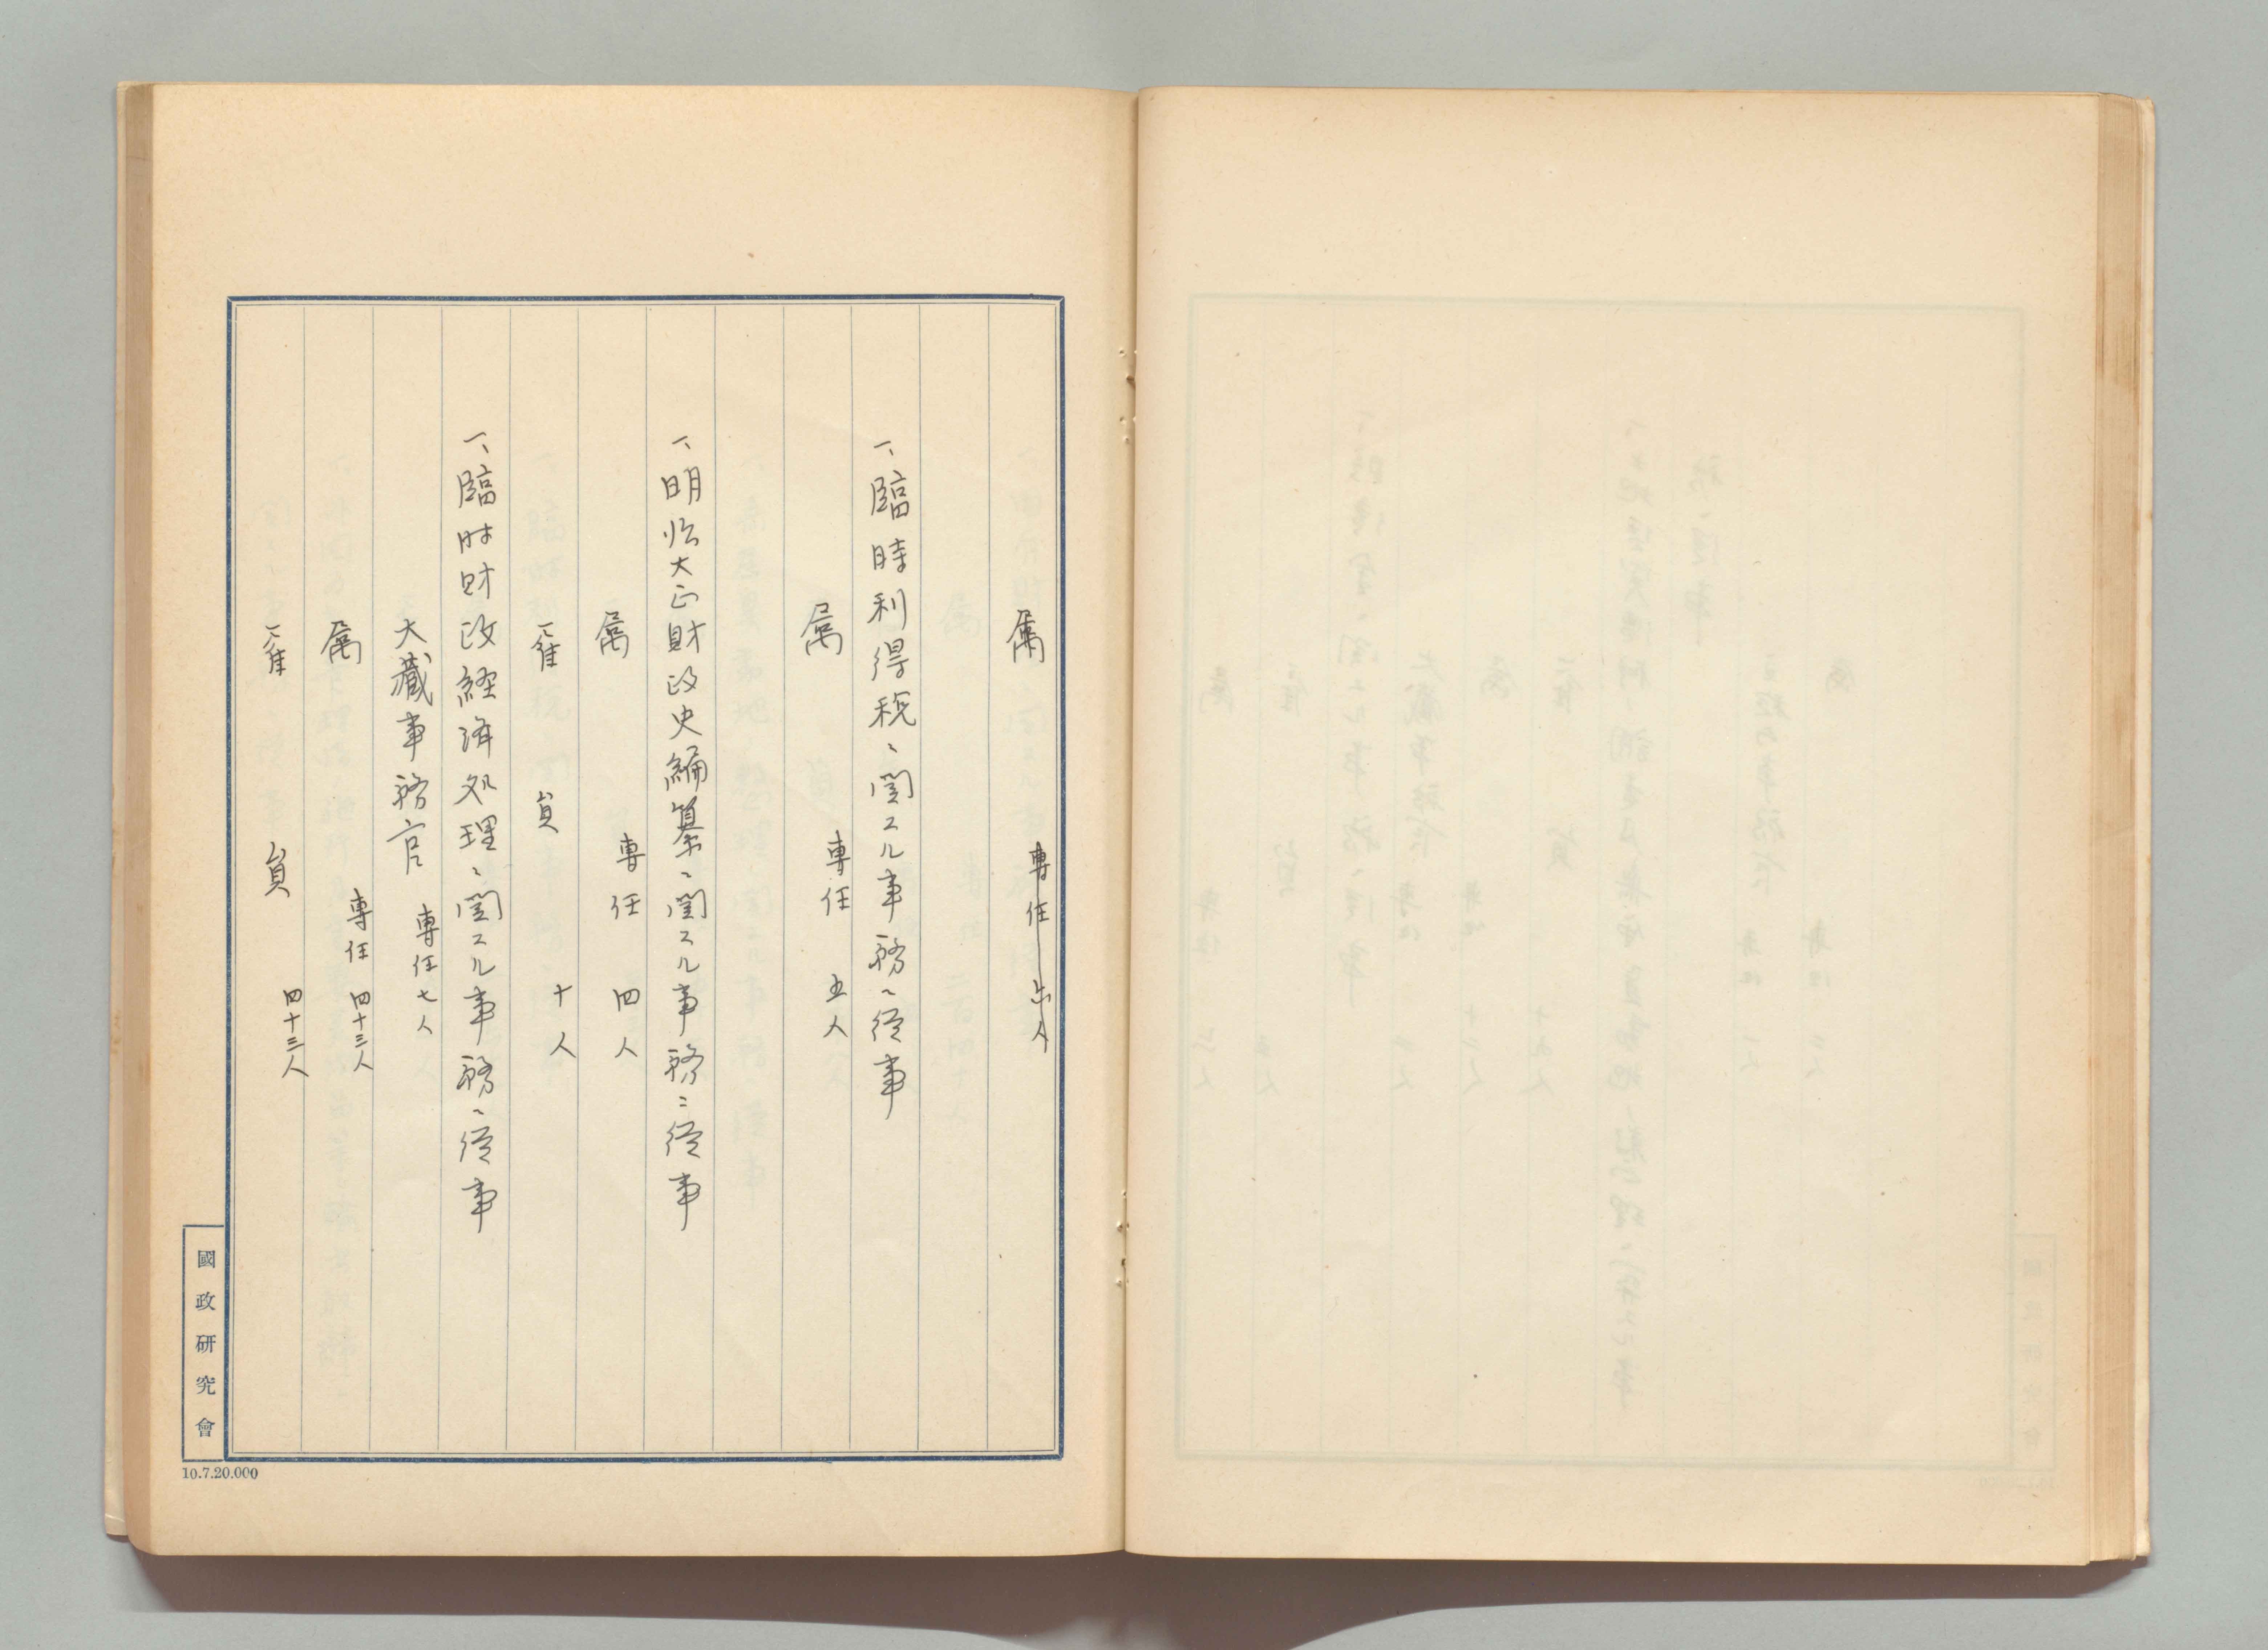 属　専任　六人
一、臨時利得税ニ関スル事務ニ従事
属　専任　五人
一、明治大正財政史編纂ニ関スル事務ニ従事
属　専任　四人
雇員　十人
一、臨時財政経済処理ニ関スル事務ニ従事
大藏事務官　専任七人
属　専任　四十三人
雇員　四十三人
國政研究會
10.7.20.000